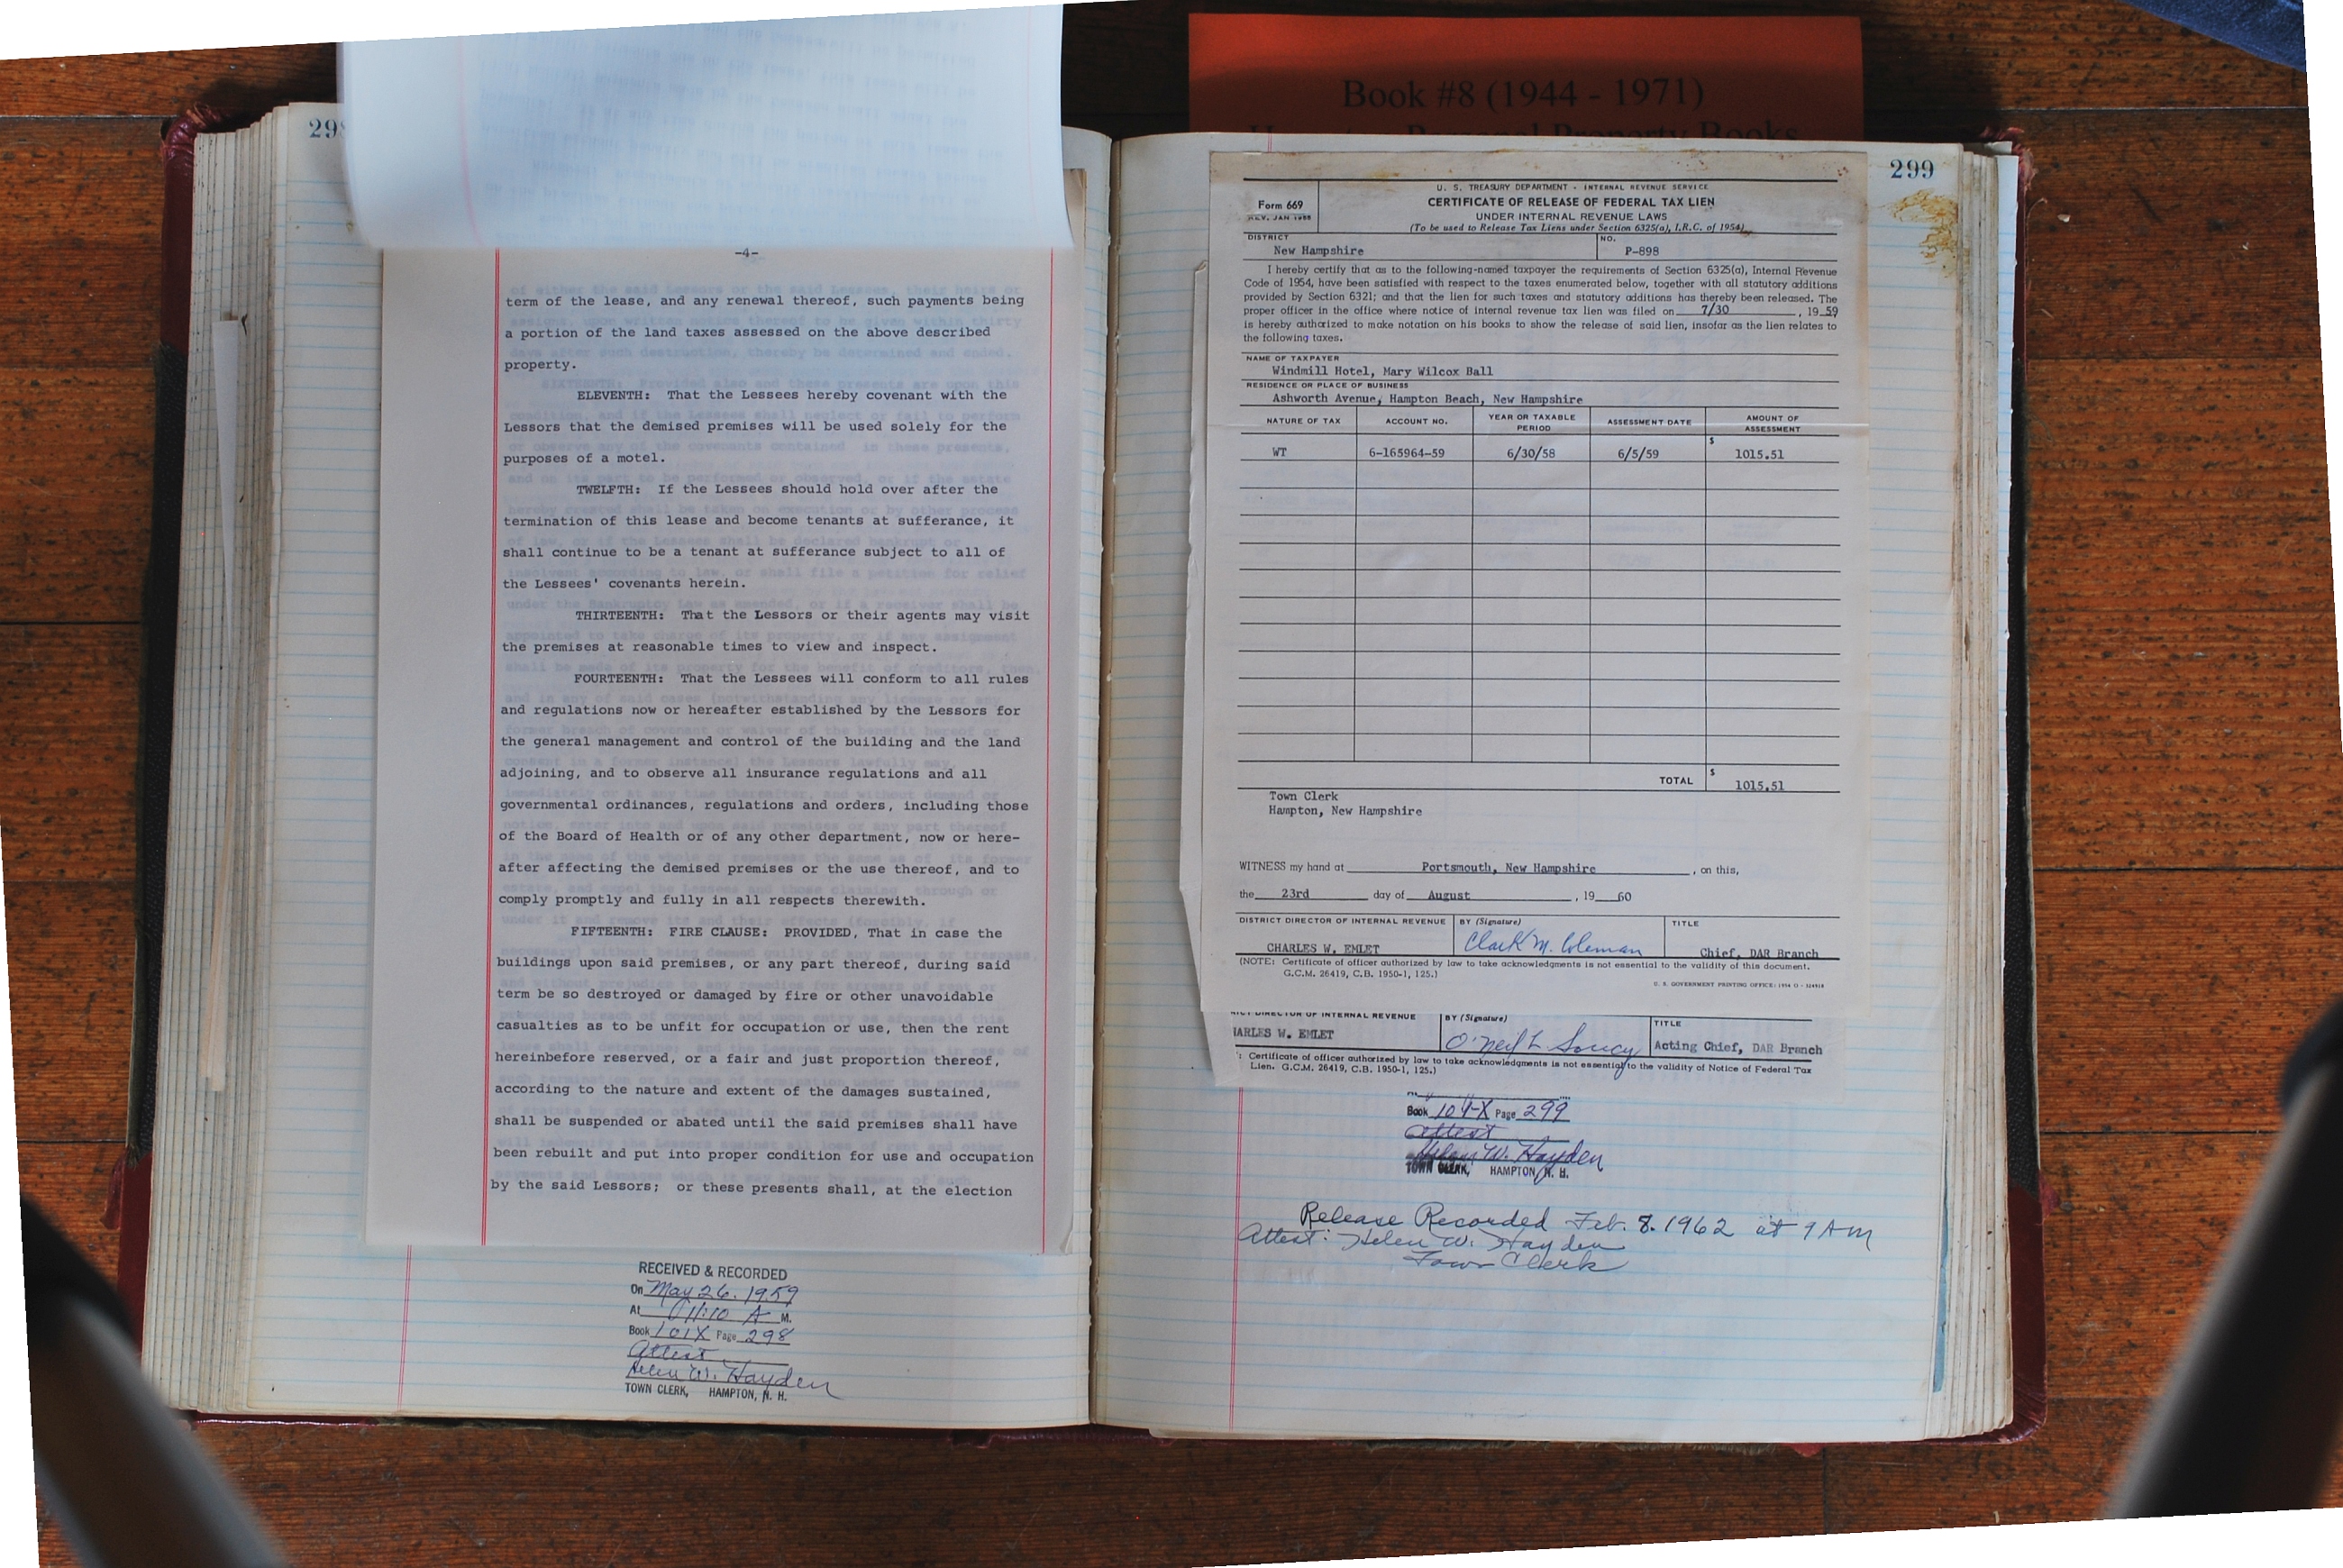 Book #8 (1944 - 1971)
Personal Property Books
-4-
term of the lease, and any renewal thereof, such payments being
a portion of the land taxes assessed on the above described
property.
ELEVENTH: That the Lessees hereby covenant with the
Lessors that the demised premises will be used solely for the
purposes of a motel.
TWELFTH: If the Lessees should hold over after the
termination of this lease and become tenants at sufferance, it
shall continue to be a tenant at sufferance subject to all of
the Lessees' covenants herein.
THIRTEENTH: That the Lessors or their agents may visit
the premises at reasonable times to view and inspect.
FOURTEENTH: That the Lessees will conform to all rules
and regulations now or hereafter established by the Lessors for
the general management and control of the building and the land
adjoining, and to observe all insurance regulations and all
governmental ordinances, regulations and orders, including those
of the Board of Health or of any other department, now or here-
after affecting the demised premises or the use thereof, and to
comply promptly and fully in all respects therewith.
FIFTEENTH: FIRE CLAUSE: PROVIDED, That in case the
buildings upon said premises, or any part thereof, during said
term be so destroyed or damaged by fire or other unavoidable
casualties as to be unfit for occupation or use, then the rent
hereinbefore reserved, or a fair and just proportion thereof,
according to the nature and extent of the damages sustained,
shall be suspended or abated until the said premises shall have
been rebuilt and put into proper condition for use and occupation
by the said Lessors; or these presents shall, at the election
RECEIVED & RECORDED
On May 26. 1959
At 11:10 A M.
Book 101X Page 298
Attest
Helen W. Hayden
TOWN CLERK, HAMPTON, N. H.
299
Form 669
REV. JAN 1955
U. S. TREASURY DEPARTMENT - INTERNAL REVENUE SERVICE
CERTIFICATE OF RELEASE OF FEDERAL TAX LIEN
UNDER INTERNAL REVENUE LAWS
(To be used to Release Tax Liens under Section 6325(a), I.R.C. of 1954)
DISTRICT NO.
New Hampshire P-898
I hereby certify that as to the following-named taxpayer the requirements of Section 6325(a), Internal Revenue
Code of 1954, have been satisfied with respect to the taxes enumerated below, together with all statutory additions
provided by Section 6321; and that the lien for such taxes and statutory additions has thereby been released. The
proper officer in the office where notice of internal revenue tax lien was filed on 7/30, 19 59
is hereby authorized to make notation on his books to show the release of said lien, insofar as the lien relates to
the following taxes.
NAME OF TAXPAYER
Windmill Hotel, Mary Wilcox Ball
RESIDENCE OR PLACE OF BUSINESS
Ashworth Avenue, Hampton Beach, New Hampshire
NATURE OF TAX ACCOUNT NO. YEAR OR TAXABLE PERIOD ASSESSMENT DATE AMOUNT OF ASSESSMENT
WT 6-165964-59 6/30/58 6/5/59 $ 1015.51
TOTAL $ 1015.51
Town Clerk
Hampton, New Hampshire
WITNESS my hand at Portsmouth, New Hampshire, on this,
the 23rd day of August, 19 60
DISTRICT DIRECTOR OF INTERNAL REVENUE BY (Signature) TITLE
CHARLES W. EMLET Clark M. Coleman Chief, DAR Branch
(NOTE: Certificate of officer authorized by law to take acknowledgments is not essential to the validity of this document.
G.C.M. 26419, C.B. 1950-1, 125.)
U. S. GOVERNMENT PRINTING OFFICE: 1954 O -
DIRECTOR OF INTERNAL REVENUE BY (Signature) TITLE
ARLES W. EMLET O'Neil L Soucy Acting Chief, DAR Branch
: Certificate of officer authorized by law to take acknowledgments is not essential to the validity of Notice of Federal Tax
Lien. G.C.M. 26419, C.B. 1950-1, 125.)
Book 101-X Page 299
Attest
Helen W. Hayden
TOWN CLERK, HAMPTON, N. H.
Release Recorded Feb. 8. 1962 at 9 AM
Attest: Helen W. Hayden
Town Clerk